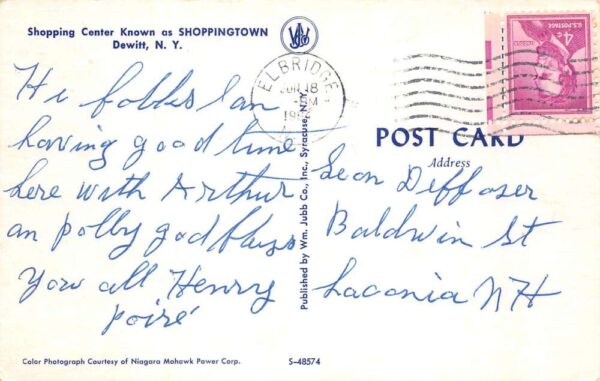 Shopping Center Known as SHOPPINGTOWN
Dewitt, N. Y.
Hi folkes I am
having good time
here with Arthur
an polly god bless
you all Henry
Poiré
ELBRIDGE
JUN 18
U.S. POSTAGE
4¢
LINCOLN
POST CARD
Address
Leon
Baldwin St
Laconia NH
Published by Wm. Jubb Co., Inc., Syracuse, N.Y.
Color Photograph Courtesy of Niagara Mohawk Power Corp.
S-48574